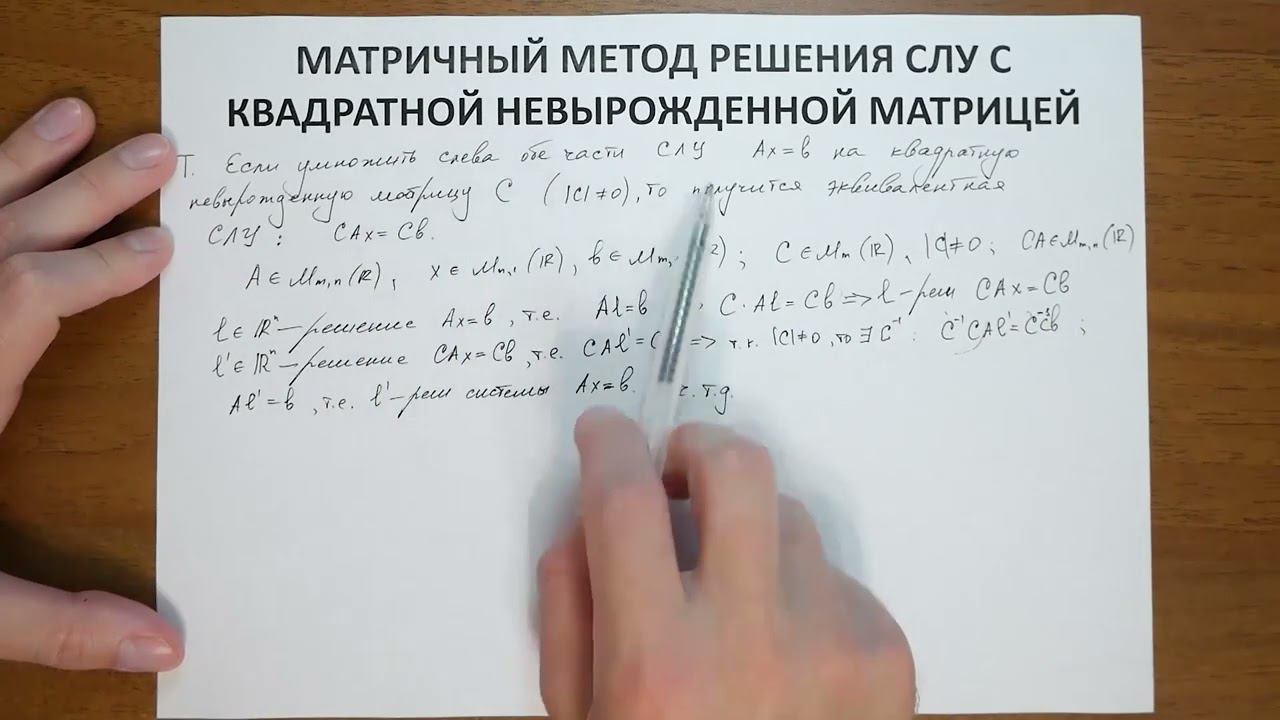 МАТРИЧНЫЙ МЕТОД РЕШЕНИЯ СЛУ С
КВАДРАТНОЙ НЕВЫРОЖДЕННОЙ МАТРИЦЕЙ
Т. Если умножить слева обе части СЛУ Ax=b на квадратную
невырожденную матрицу C (|C|≠0), то получится эквивалентная
СЛУ: CAx=Cb.
A∈Mm,n(ℝ), x∈Mn,1(ℝ), b∈Mm, ); C∈Mm(ℝ), |C|≠0; CA∈Mm,n(ℝ)
l∈ℝⁿ – решение Ax=b, т.е. Al=b C·Al=Cb ⇒ l – реш CAx=Cb
l'∈ℝⁿ – решение CAx=Cb, т.е. CAl'=C ⇒ т.к. |C|≠0, то ∃C⁻¹: C⁻¹CAl'=C⁻¹Cb;
Al'=b, т.е. l' – реш системы Ax=b. ч.т.д.